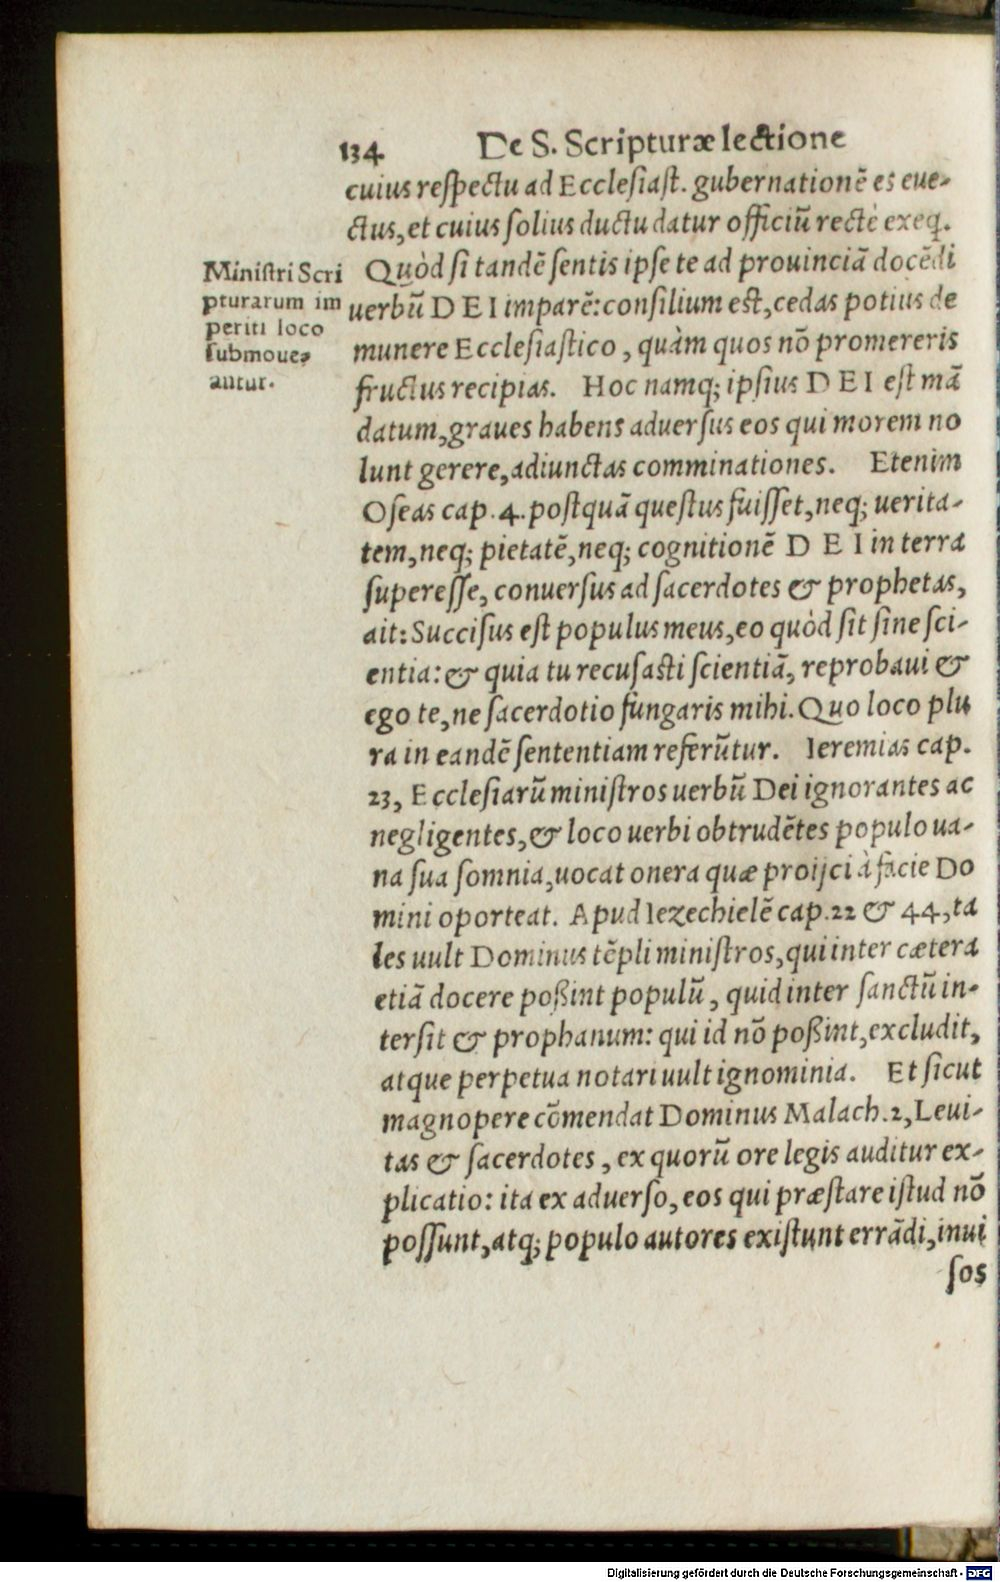 134 De S. Scripturæ lectione
cuius reſpectu ad Eccleſiaſt. gubernationē es eue-
ctus, et cuius ſolius ductu datur officiū rectè exeq.
Quòd ſi tandē ſentis ipſe te ad prouinciā docēdi
uerbū DEI imparē: conſilium eſt, cedas potius de
munere Eccleſiaſtico, quàm quos nō promereris
fructus recipias. Hoc namq; ipſius DEI eſt mā
datum, graues habens aduerſus eos qui morem no
lunt gerere, adiunctas comminationes. Etenim
Oſeas cap. 4. poſtquā queſtus fuiſſet, neq; uerita-
tem, neq; pietatē, neq; cognitionē DEI in terra
ſupereſſe, conuerſus ad ſacerdotes & prophetas,
ait: Succiſus eſt populus meus, eo quòd ſit ſine ſci-
entia: & quia tu recuſaſti ſcientiā, reprobaui &
ego te, ne ſacerdotio fungaris mihi. Quo loco plu
ra in eandē ſententiam referūtur. Ieremias cap.
23, Eccleſiarū miniſtros uerbū Dei ignorantes ac
negligentes, & loco uerbi obtrudētes populo ua-
na ſua ſomnia, uocat onera quæ proijci à facie Do
mini oporteat. Apud Iezechielē cap. 22 & 44, ta
les uult Dominus tēpli miniſtros, qui inter cætera
etiā docere poßint populū, quid inter ſanctū in-
terſit & prophanum: qui id nō poßint, excludit,
atque perpetua notari uult ignominia. Et ſicut
magnopere cōmendat Dominus Malach. 2, Leui-
tas & ſacerdotes, ex quorū ore legis auditur ex-
plicatio: ita ex aduerſo, eos qui præſtare iſtud nō
poſſunt, atq; populo autores exiſtunt errādi, inui
ſos
Miniſtri Scri
pturarum im
periti loco
ſubmoue-
antur.
Digitalisierung gefördert durch die Deutsche Forschungsgemeinschaft - DFG